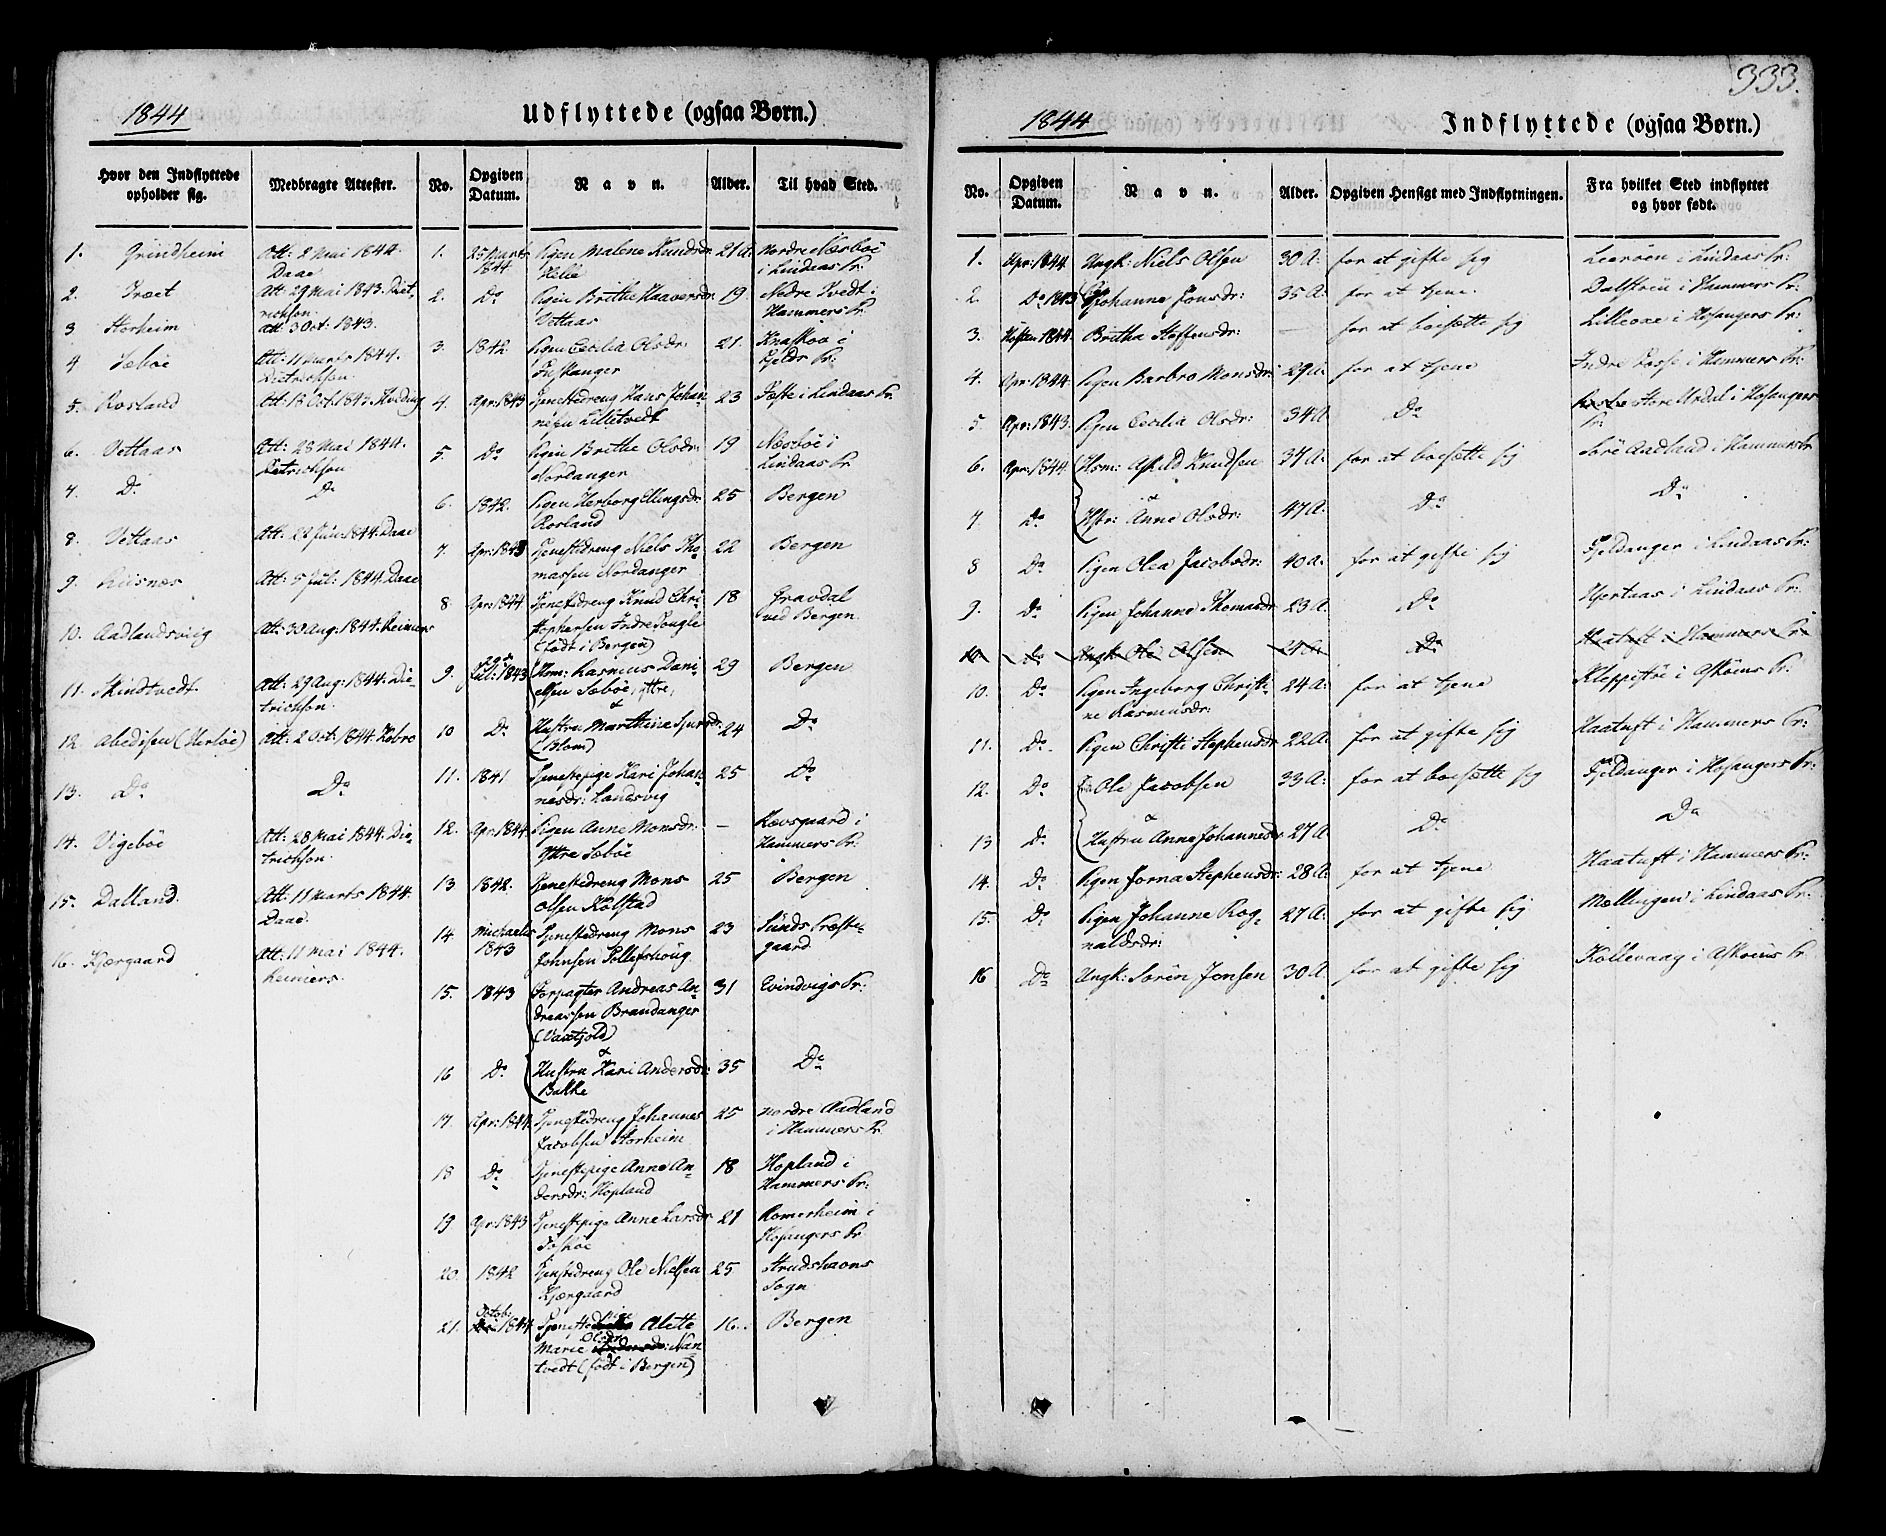 1844
Udflyttede (ogsaa Børn.)
Hvor den Indflyttede opholder sig.
Medbragte Attester.
No.
Opgiven Datum.
Navn.
Alder.
Til hvad Sted.
1. Grindheim
Att: 2 Mai 1844. Daae
2. Træet
Att: 29 Mai 1843. Diet-
richson.
3 Storheim
Att: 3 Oct: 1843.
4 Sæbøe
Att: 11 Marts 1844.
Dietrichson.
5. Rosland
Att: 18 Oct: 1843.
6. Vettaas
Att: 28 Mai 1844.
Dietrichson
7. Do
Do
8. Vettaas
Att: 22 Jun: 1844. Daae
9. Liisnæs
Att: 5 Jul: 1844. Daae
10. Aadlandsviig
Att: 30 Aug: 1844. Reimers
11. Skindtvedt.
Att: 29 Aug: 1844. Die-
trichson.
12. Abedisen (Herløe)
Att: 2 Oct: 1844. Kobro
13. Do
Do
14. Vigebøe
Att: 28 Mai 1844. Die-
trichson.
15. Dalland.
Att: 11 Marts 1844.
Daae.
16. Kjærgaard
Att: 11 Mai 1844.
Reimers.
1. 25 Marts 1844 Pigen Malene Knudsdr: Helle 21 A: Nordre Næsbøe i Lindaas Pr:
2. Do Pigen Brithe Haaversdr: Vettaas 19. Nedre Tvedt i Hammers Pr:
3. 1842 Pigen Cecilia Olsdr: Feskanger 21. i Fjelds Pr:
4. Apr: 1843 Tjenestedreng Hans Johan-
nesen Lilletvedt 23 Toste i Lindaas Pr:
5. Do Pigen Brithe Olsdr: Nordanger 19 Næsbøe i Lindaas Pr
6. 1842. Pigen Herborg Ellingsdr: Rosland 25 Bergen
7. Apr: 1843 Tjenestedreng Niels Tho-
massen Nordanger 22 Bergen
8. Apr: 1844 Tjenestedreng Knud Chri-
stophersen Indre Tougle
(født i Bergen) 18 Gravdal ved Bergen
9. Jul: 1843 Hsm: Rasmus Dani-
elsen Sæbøe, yttre, 29 Bergen
&
10 Do Hustru Marthine Sjursdr: (Blom) 24 Do
11. 1841 Tjenestepige Kari Johan-
nesdr: Landsvig 25 Do
12. Apr: 1844 Pigen Anne Monsdr: Yttre Sæbøe — Røvsgaard i Hammers Pr:
13 1842. Tjenestedreng Mons
Olsen Kolstad 25 Bergen
14. Michaelis 1843 Tjenestedreng Mons
Johnsen Tollefshoug 23 Sunds Præste-
gaard.
15. 1843 Forpagter Andreas An-
dreassen Brandanger 31 Evindvigs Pr:
&
16 Do Hustru Kari Andersdr: Bakke 35 Do
17. Apr: 1844 Tjenestedreng Johannes
Jacobsen Storheim 25 Nordre Aadland i Hammers Pr
18 Do Tjenestepige Anne An-
dersdr: Hopland 18 Hopland i Hammers Pr:
19 Apr: 1843 Tjenestepige Anne Larsdr: Toskøe 21 Romerheim i Hosangers Pr:
20. 1842 Tjenstedreng Ole Nielsen Kjærgaard 25 Strudshavns Sogn
21. Octob: 1844 Tjenestepige Alette
Marie Olsdr: Nan-
tvedt (født i Bergen) 16. Bergen
333.
1844
Indflyttede (ogsaa Børn.)
No.
Opgiven Datum.
Navn.
Alder.
Opgiven Hensigt med Indflytningen.
Fra hvilket Sted indflyttet og hvor født.
1. Apr: 1844 Ungk: Niels Olsen 30 A: for at gifte sig Leerøen i Lindaas Pr:
2. Do 1843 Johanne Jonsdr: 35 A: for at tjene. Dalstøen i Hammers Pr:
3. Høsten 1844 Britha Steffensdr: — for at bosætte sig Lilleoxe i Hosangers Pr:
4. Apr: 1844 Pigen Barbro Monsdr: 29 A: for at tjene Indre Fosse i Hammers Pr:
5. Apr: 1843. Pigen Cecilia Olsdr: 34 A Do Store Urdal i Hosangers Pr:
6. Apr: 1844 Hsm: Askild Knudsen 37 A: for at bosætte sig Søre Aadland i Hammers Pr
&
7. Do Hstr: Anne Olsdr: 47 A. Do Do
8 Do Pigen Olea Jacobsdr: 40 A: for at gifte sig Fjeldanger i Lindaas Pr:
9. Do Pigen Johanne Thomasdr 23 A: Do Hjertaas i Lindaas Pr:
10. Do Ungk: Ole Olsen 24 A: Do Haatuft i Hammers Pr:
10. Do Pigen Ingeborg Christi-
ne Rasmusdr: 24 A: for at tjene Kleppestøe i Askøens Pr:
11. Do. Pigen Christi Stephensdr 22 A: for at gifte sig Haatuft i Hammers Pr:
12. Do Ole Jacobsen 33 A: for at bosætte sig Fjeldanger i Hosangers Pr:
&
13 Do Hustru Anna Johannesdr: 27 A: Do Do
14. Do Pigen Jorna Stephensdr: 28 A: for at tjene Haatuft i Hammers Pr:
15. Do Pigen Johanne Rog-
naldsdr: 27 A: for at gifte sig Mællingen i Lindaas Pr:
16 Do Ungk: Søren Jonsen 30 A for at gifte sig Kollevaag i Askøens Pr